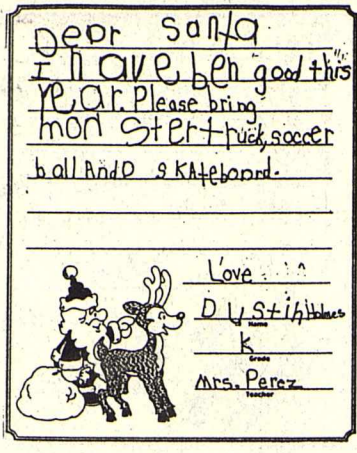 Dear Santa
I have ben good this
year. Please bring
monster truck, soccer
ball AndD skateboard.
Love
Dustin Holmes
Name
K
Grade
Mrs. Perez
Teacher